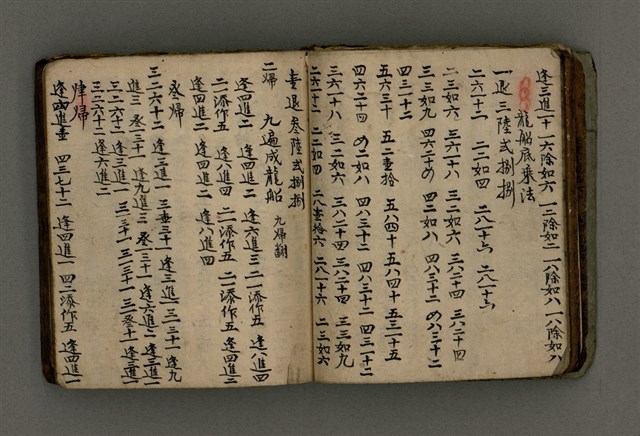 逢三進一十 一六除如六 一二除如二 一八除如八 一八除如八
龍船底乘法
一退三陸弍捌捌
二六十二 二二如四 二八十六 二八十六
二三如六 三六十八 三二如六 三八二十四 三八二十四
三三如九 四六二十四 四二如八 四八三十二 四八三十二
四三十二
五六三十 五二壹拾 五八四十 五八四十 五三十五
四六二十四 四二如八 四八三十二 四八三十二 四三十二
三六十八 三二如六 三八二十四 三八二十四 三三如九
二六十二 二二如四 二八壹拾六 二八十六 二三如六
壹退叁陸弍捌捌
九遍成龍船 九歸
二歸
逢四進二 逢六進三 二一添作五 逢八進四
二一添作五 逢八進四 二一添作五 二一添作五
逢四進二 逢四進二 逢八進四
叁歸
三二六十二 逢三進一 三壹三十一 逢三進一 三一三十一 逢九
進三 三一三十一 逢九進三 三十一 逢六進二 逢三進一
三二六十二 逢三進一 三一三十一 三一三十一 逢三進一
三二六十二 逢六進二
肆歸
逢四進壹 四三七十二 逢四進一 四二添作五 逢四進一